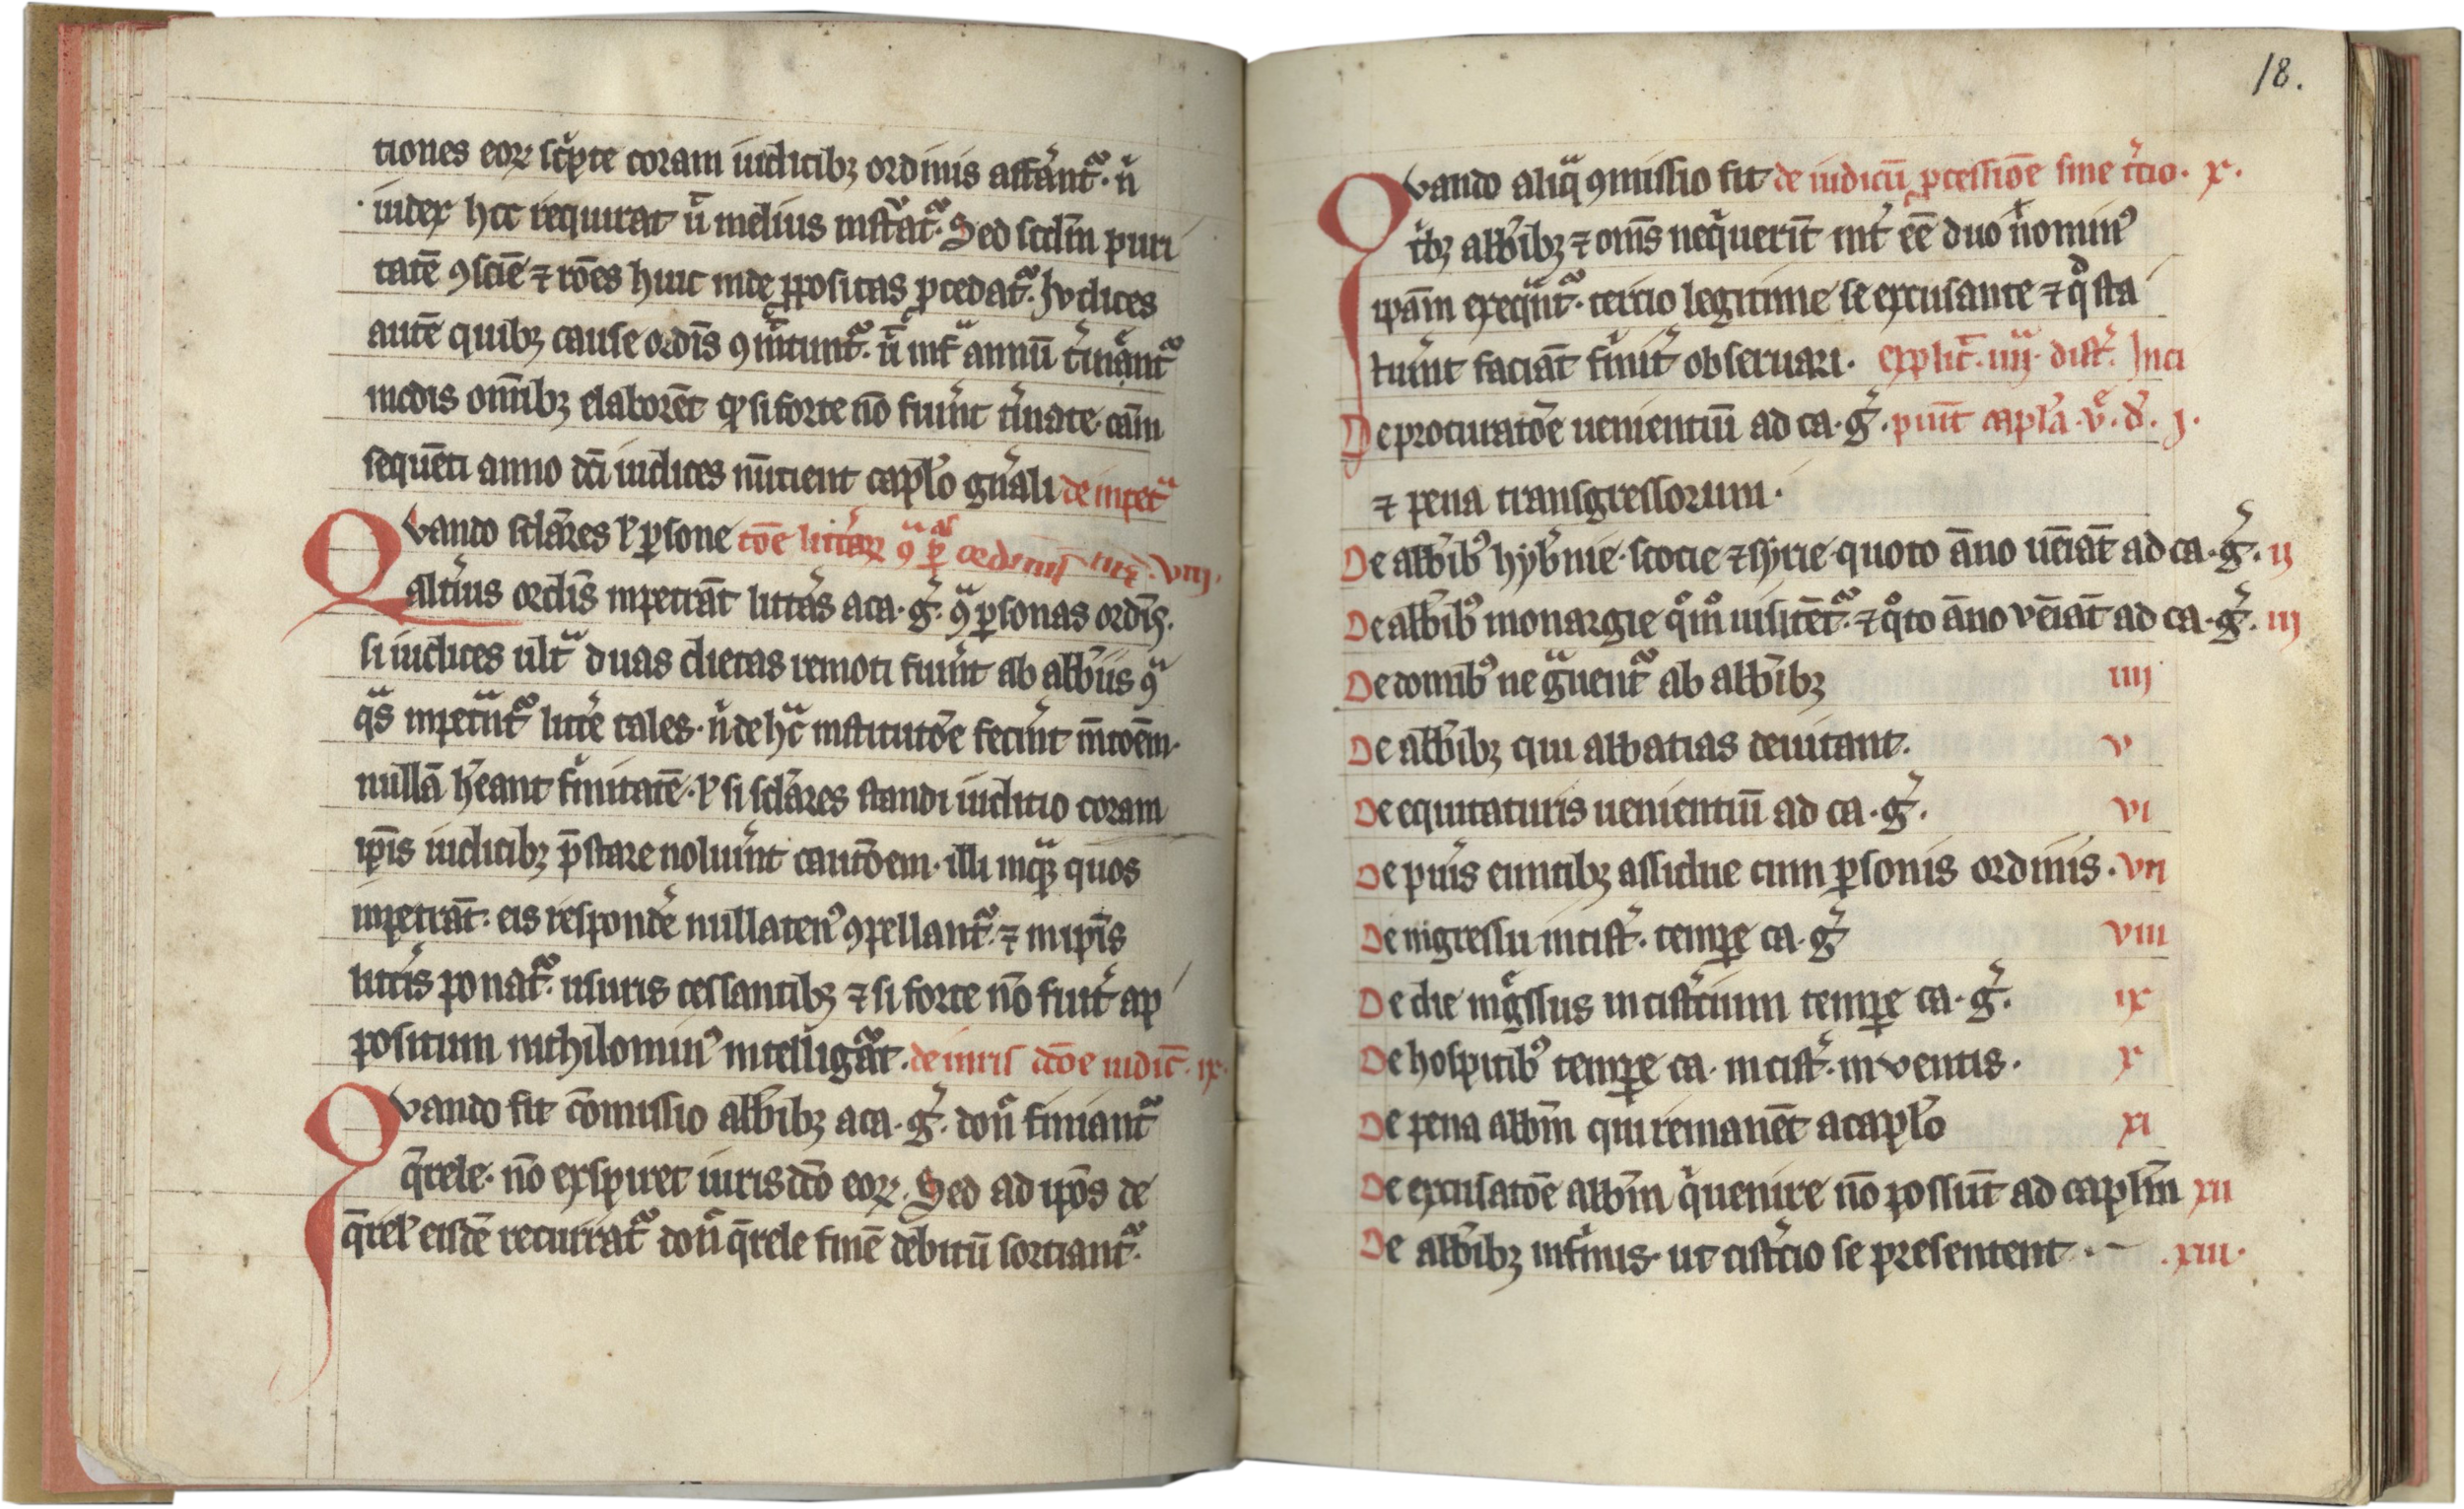 tiones eoꝝ sc̾pte coram iudicibꝫ ordinis afferant᷑. n̾
iudex hec requirat ꝟ meliusinstruat᷑. Sed scd̾m puri
tatē ꝯsciē ⁊ rōes huic inde ꝓpositas procedat᷑. Judices
autē quibꝫ cause ordīs ꝯmittunt᷑. n̄ infra annū t̾minant᷑
modis om̄ibꝫ elaborēt qd̾ si forte nō fuerint t̾minate. cām
sequēti anno dc̄i iudices nūcient capl̾o gn̾ali de inpet
Quando scl̾ares ł ꝑsone tōe litt̾aꝝ ꝯ ꝑ. ordinis nr̄i. viij.
alt̾ius ordīs inpetrāt litt̾as a ca. g̾. ꝯ ꝑsonas ordīs.
si iudices ult̾ duas dietas remoti fuerint ab abb̾iis ꝯ
q̾s inpetrant᷑ litt̾e tales. n̾ de hac institutōe fecerint mentōem.
nullā hēant firmitatē. ł si scl̾ares standi iudicio coram
ip̄is iudicibꝫ p̄stare noluerint cautōem. illi inquā quos
inpetrāt. eis respondēe nullatenꝰ ꝯpellant᷑. ⁊ in ip̄is
litt̾is ponat᷑. usuris cessantibꝫ ⁊ si forte nō fuit ap
positum nichilominꝰ intelligat᷑. de iuris dc̄oe iudic̄. ix.
Quando fit cōmissio abb̾ibꝫ a ca. g̾. don̾ finiant᷑
q̄rele. nō exspiret iurisdc̄o eoꝝ. Sed ad ip̄os de
q̄rel̾ eisdē recurrat᷑ don̾ q̄rele finē debitū sortiant᷑.
18.
Quando aliq̾ ꝯmissio fit de iudicū ꝓcessiōe sine t̾cio. x.
t̾bꝫ abb̾ibꝫ ⁊ om̄s nequerīt int̾ēe duo n̾ominꝰ
ip̄am exequnt᷑. tercio legitime se excusante ⁊ qd̾ sta
tuerint faciāt firmit̾ obseruari. Explic̄. iiij. dist̾. Inci
De procuratōe uenientiū ad ca. g̾. piūt capl̾a. v̾. d̾. j.
⁊ pena transgressorum.
De abb̾ibꝰ hyb̾nie. scocie ⁊ syrie. quoto āno uēiāt ad ca. g̾. ij
De abb̾ibꝰ monargie qͦmͦ uisitēt᷑. ⁊ qͦto āno vēiāt ad ca. g̾. iij
De domibꝰ ne gͣuent᷑ ab abb̾ibꝫ iiij
De abb̾ibꝫ qui abbatias deuitant. v
De equitaturis uenientiū ad ca. g̾. vi
De pueris euntibꝫ assidue cum ꝑsonis ordinis. vii
De ingressu in cist̾. temꝑe ca. g̾ viii
De die ing̾ssus in cist̾cium temꝑe ca. g̾. ix
De hospitibꝰ temꝑe ca. in cist̾. inventis. x
De pena abb̾m qui remanēt a capl̾o xi
De excusatōe abb̾m q̾ uenire nō possūt ad capl̾m xii
De abb̾ibꝫ infirmis. ut cist̾cio se presentent. .xiii.